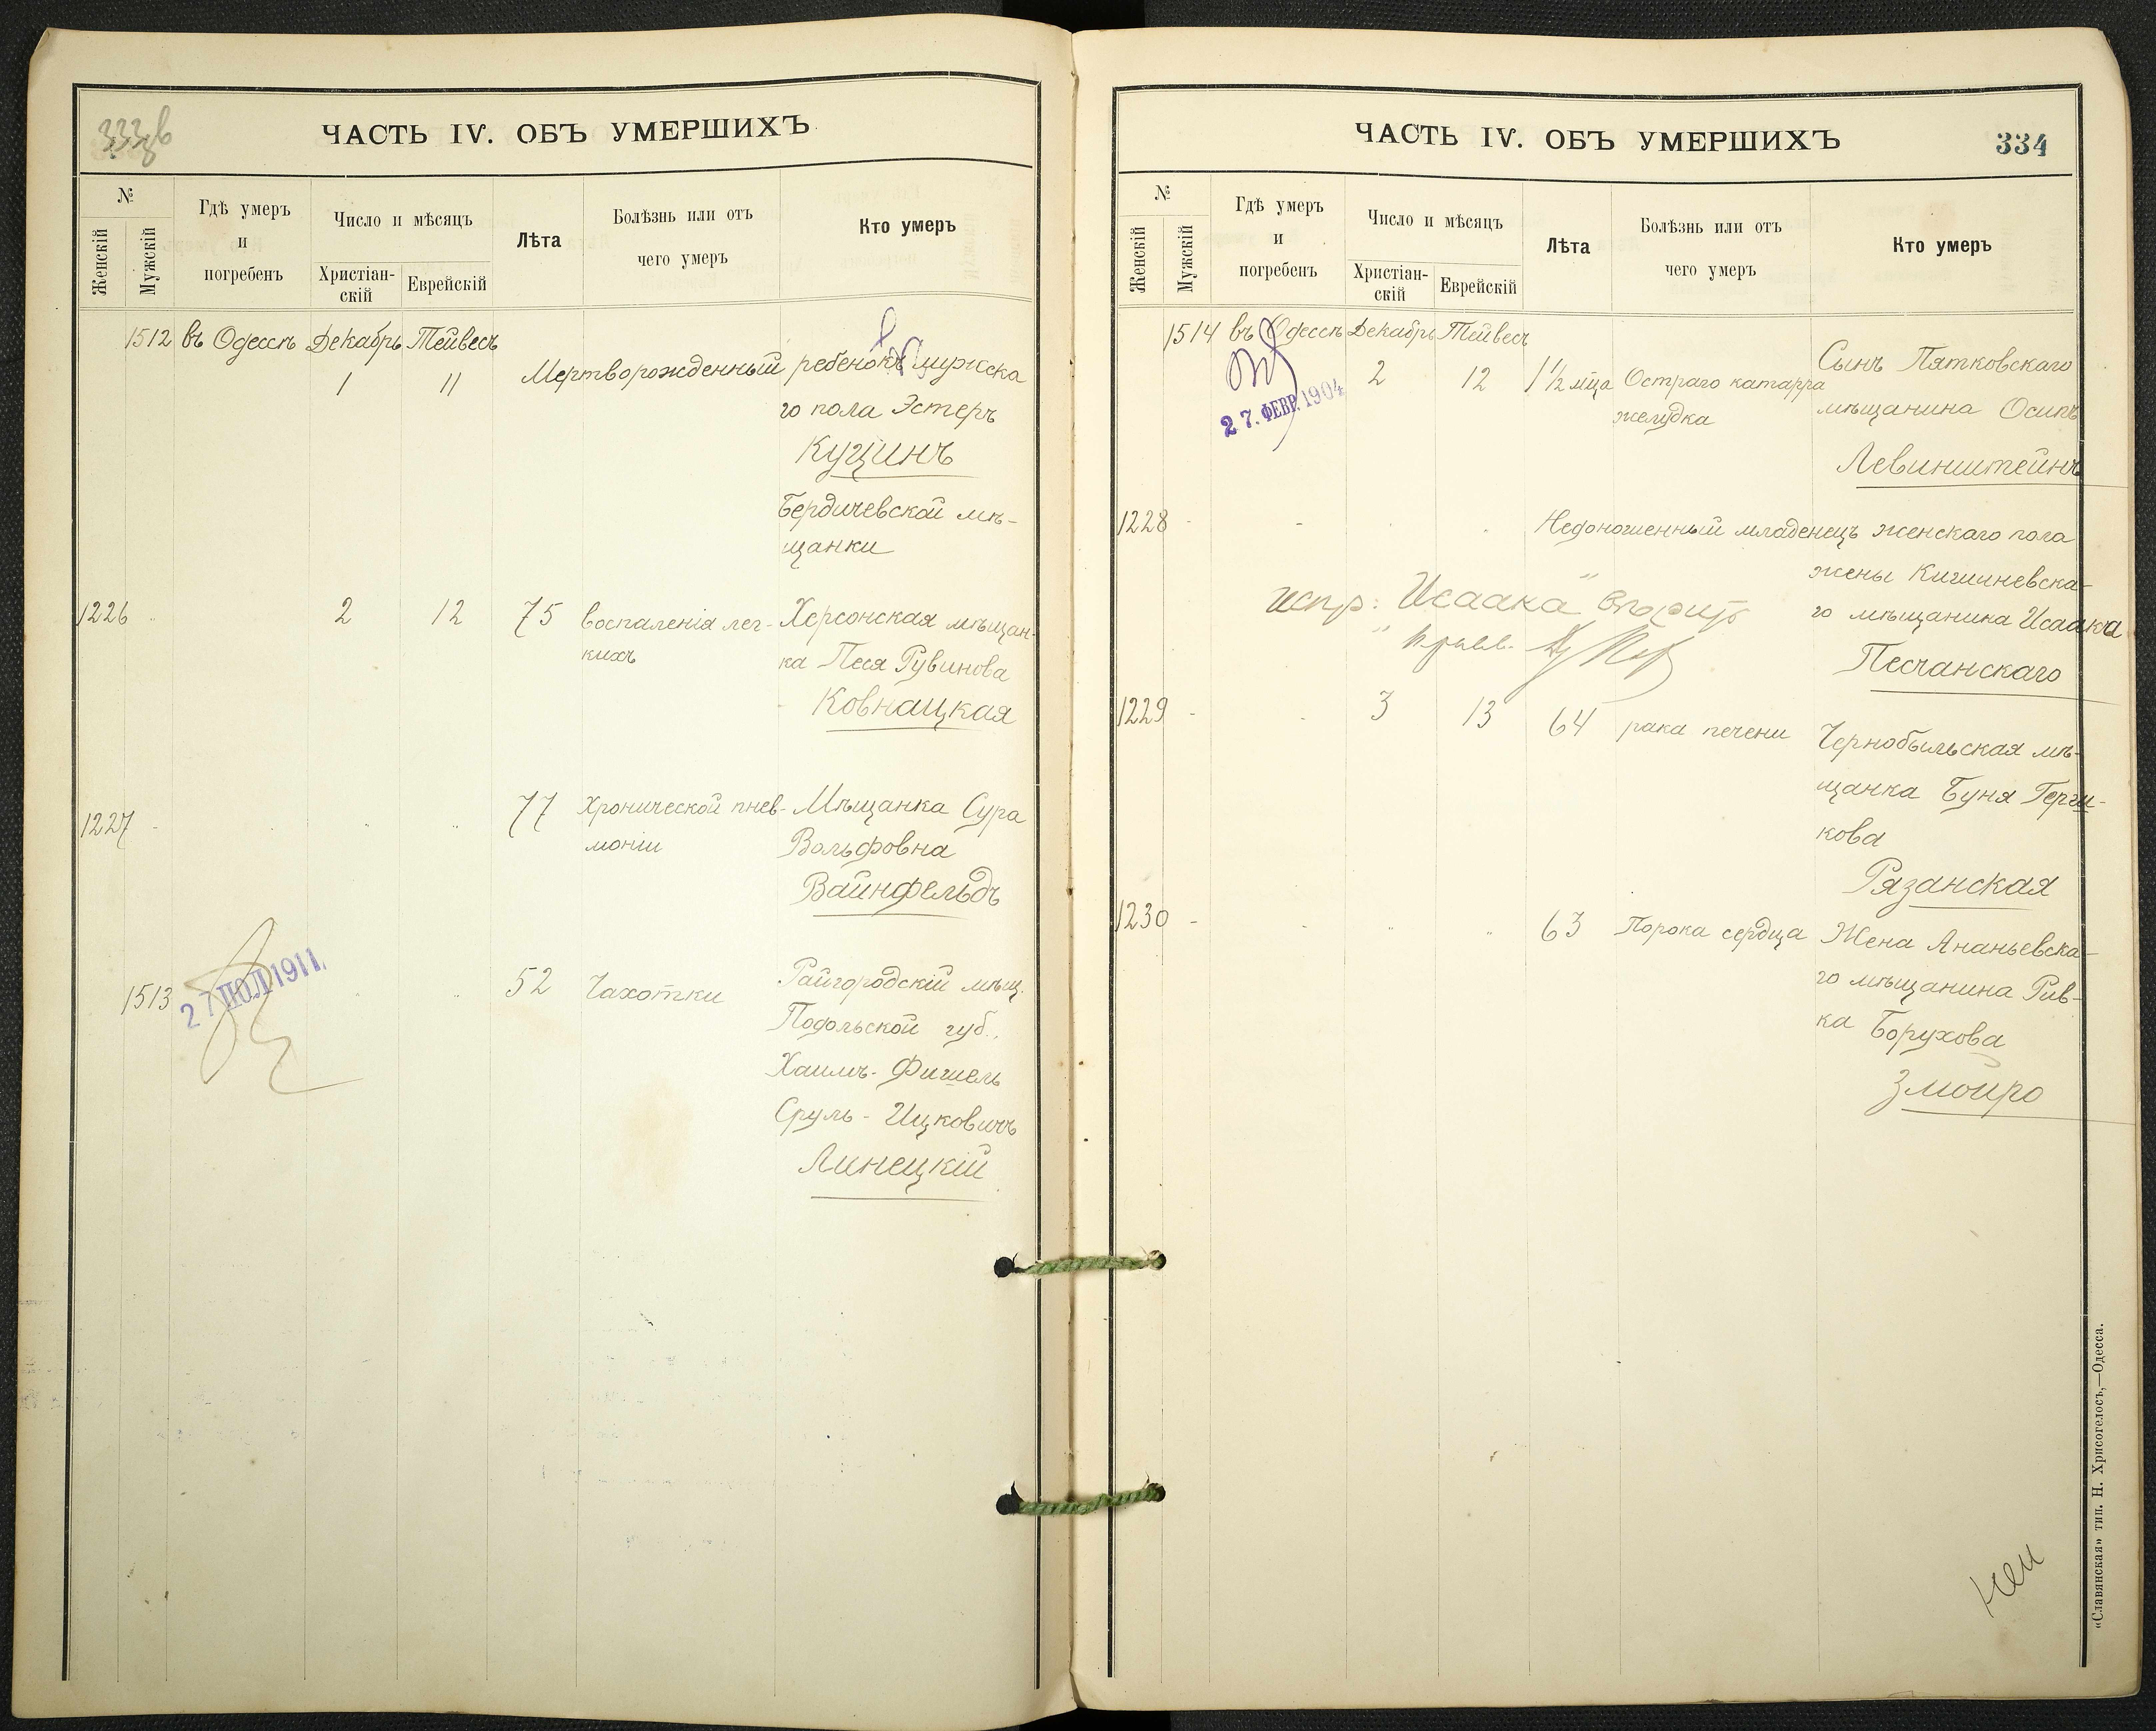 333 об
ЧАСТЬ IV. ОБЪ УМЕРШИХЪ
№
Женскій
Мужскій
Гдѣ умеръ
и
погребенъ
Число и мѣсяцъ
Христіан-
скій
Еврейскій
Лѣта
Болѣзнь или отъ
чего умеръ
Кто умеръ
1512 въ Одессѣ Декабрь Тейвесъ
1 11 Мертворожденный ребенокъ мужска
го пола Эстеръ
Куцинъ
Бердичевской мѣ-
щанки
1226 2 12 75 воспаленія лег- Херсонская мѣщан-
кихъ ка Песя Рувинова
Ковнацкая
1227 " " 77 Хронической пнев- Мѣщанка Сура
моніи Вольфовна
Вайнфельдъ
1513 27 ІЮЛ 1911. " 52 Чахотки Райгородскій мѣщ.
Подольской губ.
Хаимъ-Фишель
Сруль-Ицковичъ
Линецкій
ЧАСТЬ IV. ОБЪ УМЕРШИХЪ
334
№
Женскій
Мужскій
Гдѣ умеръ
и
погребенъ
Число и мѣсяцъ
Христіан-
скій
Еврейскій
Лѣта
Болѣзнь или отъ
чего умеръ
Кто умеръ
1514 въ Одессѣ Декабрь Тейвесъ
2 12 1 1/2 мѣца Остраго катарра Сынъ Пятковскаго
27. ФЕВР. 1904
желудка мѣщанина Осипъ
Левинштейнъ
1228 - - Недоношенный младенецъ женскаго пола
жены Кишиневска-
испр: "Исаака" вѣрить го мѣщанина Исаака
Песчанскаго
1229 - 3 13 64 рака печени Чернобыльская мѣ-
щанка Буня Герш-
кова
Рязанская
1230 - " " 63 Порока сердца Жена Ананьевска-
го мѣщанина Рив-
ка Борухова
Змойро
«Славянская» тип. Н. Хрисогелосъ,—Одесса.